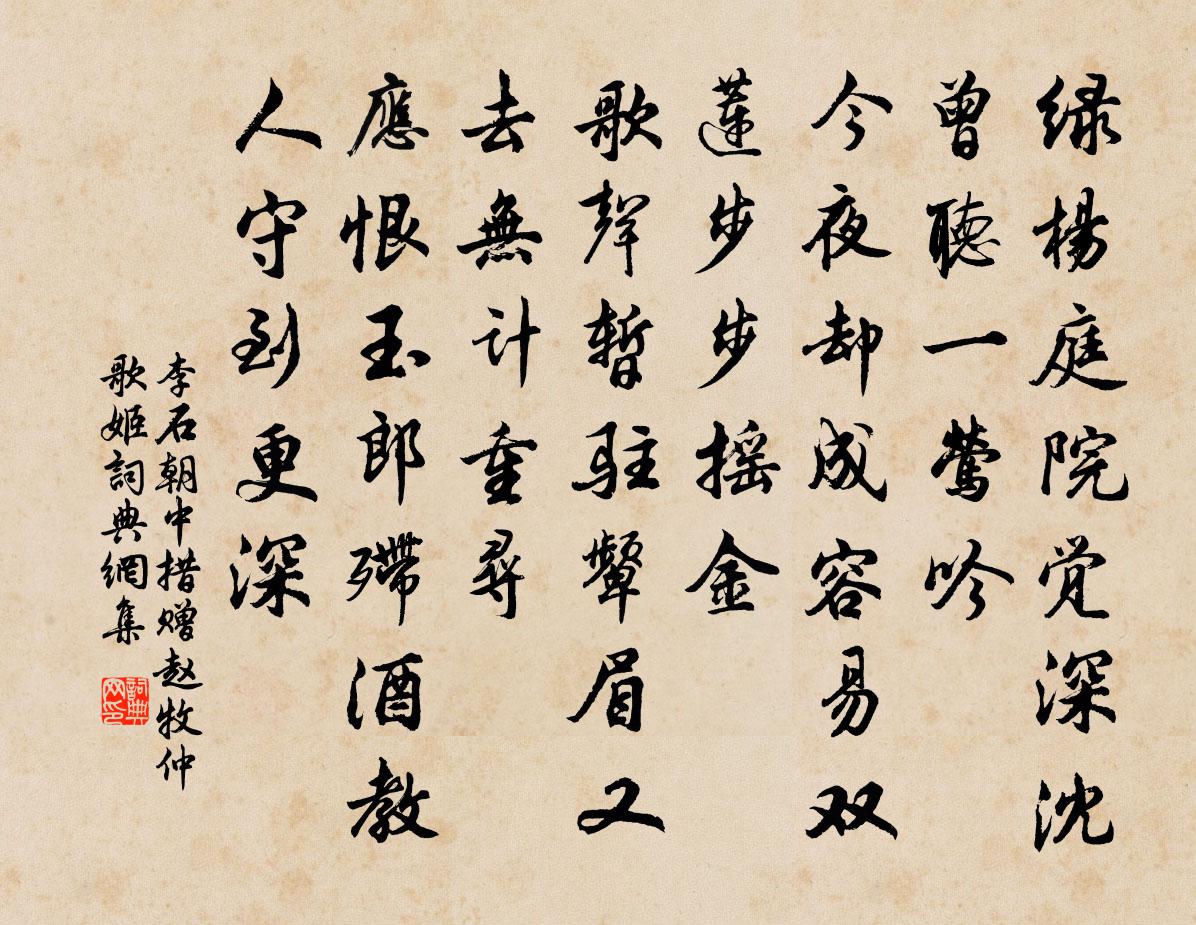 绿楊庭院觉深沈
曾聽一莺吟
今夜却成容易双
莲步步摇金
歌聲暫駐顰眉又
去無计重尋
應恨玉郎殢酒教
人守到更深
李石朝中措赠赵牧仲
歌姬詞典網集
詞典网印